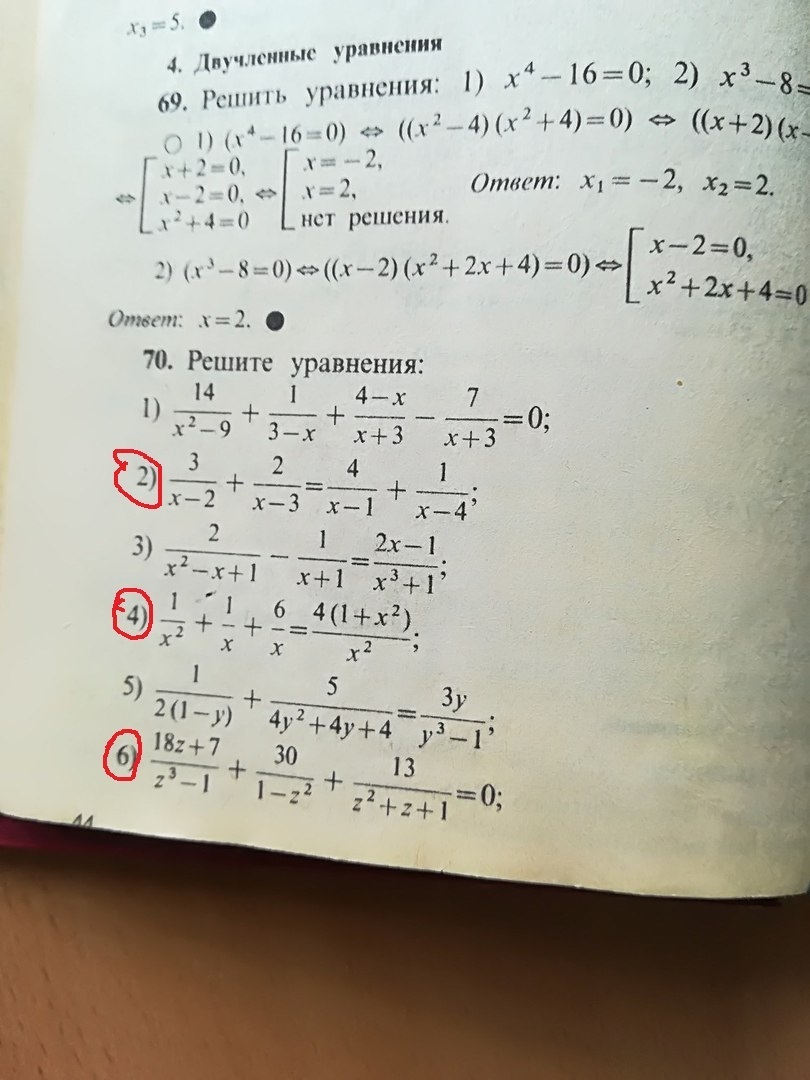 x₃ = 5. ●
4. Двучленные уравнения
69. Решить уравнения: 1) x⁴ − 16 = 0; 2) x³ − 8 =
○ 1) (x⁴ − 16 = 0) ⇔ ((x² − 4) (x² + 4) = 0) ⇔ ((x + 2) (x −
⇔ [ x + 2 = 0, x − 2 = 0, x² + 4 = 0 ⇔ [ x = − 2, x = 2, нет решения. Ответ: x₁ = − 2, x₂ = 2.
2) (x³ − 8 = 0) ⇔ ((x − 2) (x² + 2x + 4) = 0) ⇔ [ x − 2 = 0, x² + 2x + 4 = 0
Ответ: x = 2. ●
70. Решите уравнения:
1) 14/(x² − 9) + 1/(3 − x) + (4 − x)/(x + 3) − 7/(x + 3) = 0;
2) 3/(x − 2) + 2/(x − 3) = 4/(x − 1) + 1/(x − 4);
3) 2/(x² − x + 1) − 1/(x + 1) = (2x − 1)/(x³ + 1);
4) 1/x² + 1/x + 6/x = 4 (1 + x²)/x²;
5) 1/(2 (1 − y)) + 5/(4y² + 4y + 4) = 3y/(y³ − 1);
6) (18z + 7)/(z³ − 1) + 30/(1 − z²) + 13/(z² + z + 1) = 0;
44